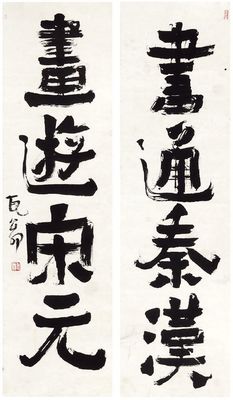 書通秦漢
畫遊宋元